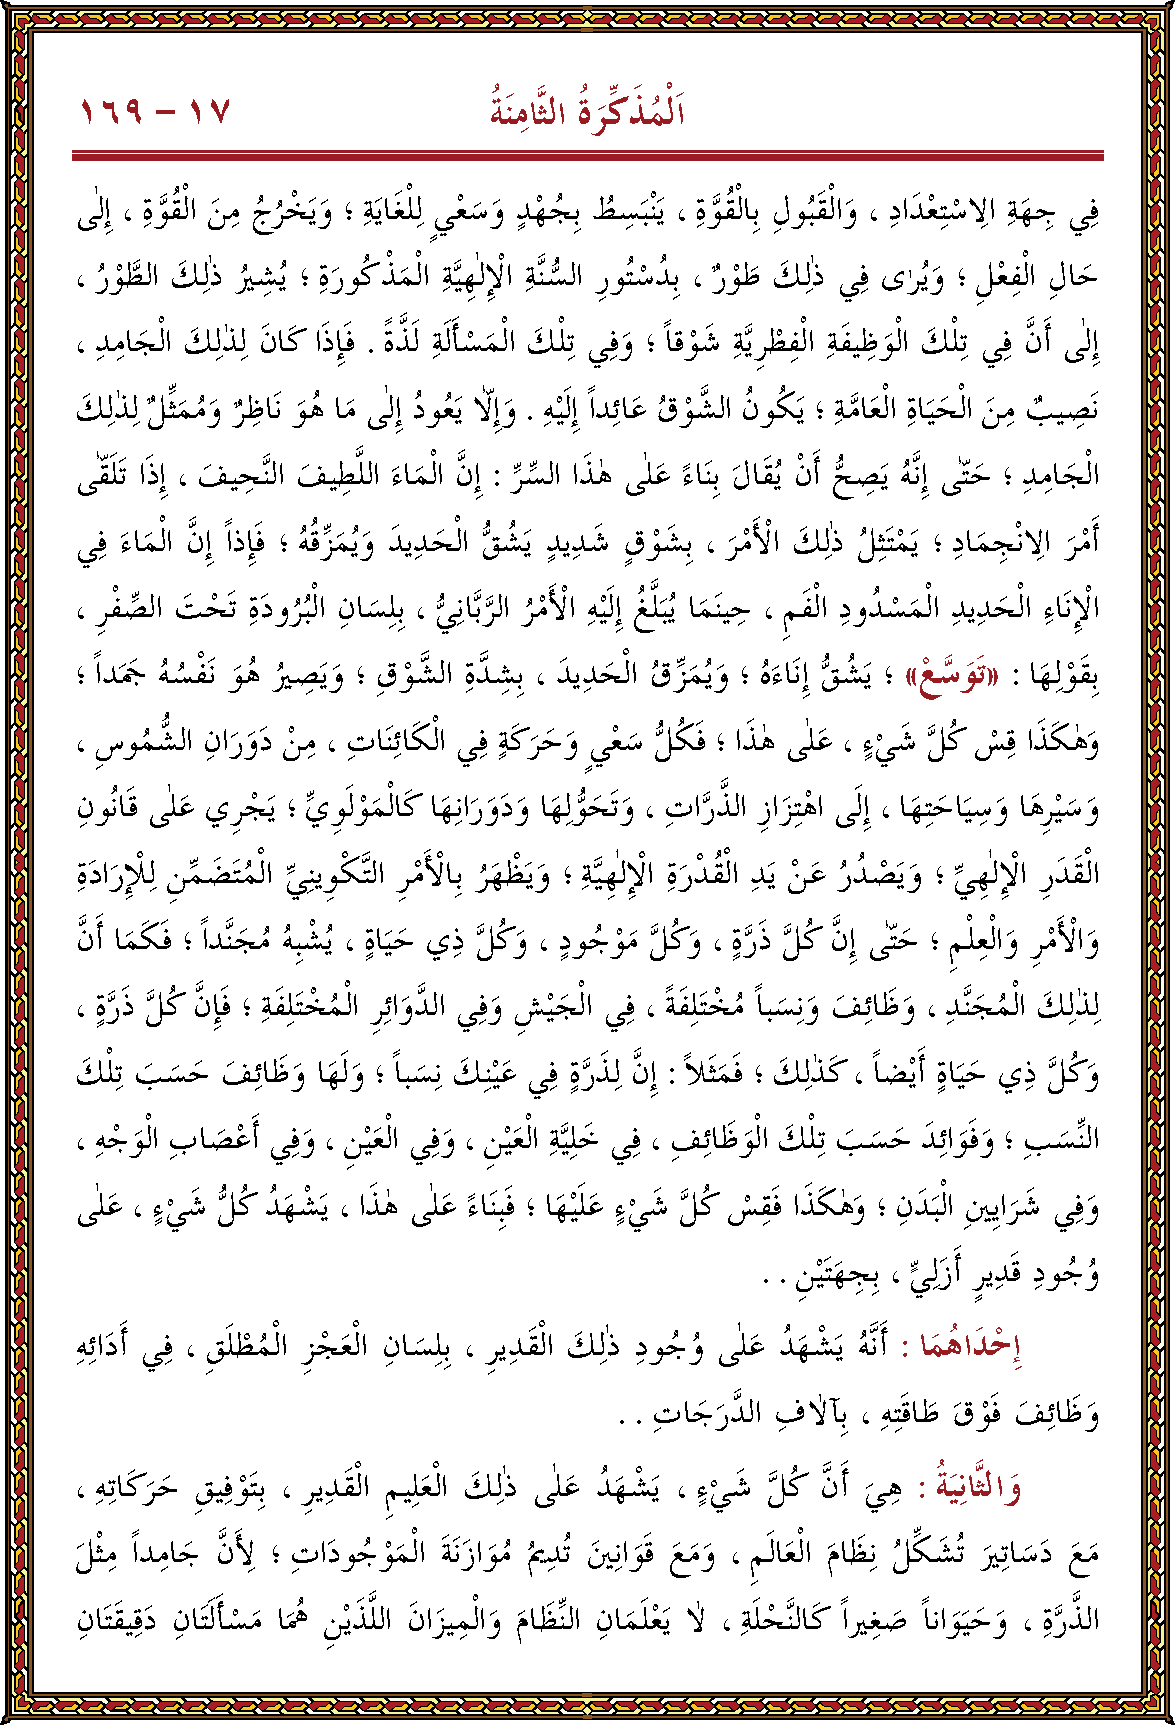 اَلْمُذَكِّرَةُ الثَّامِنَةُ
١٧ – ١٦٩
فِي جِهَةِ الِاسْتِعْدَادِ ، وَالْقَبُولِ بِالْقُوَّةِ ، يَنْبَسِطُ بِجُهْدٍ وَسَعْيٍ لِلْغَايَةِ ؛ وَيَخْرُجُ مِنَ الْقُوَّةِ ، إِلٰى
حَالِ الْفِعْلِ ؛ وَيُرٰى فِي ذٰلِكَ طَوْرٌ ، بِدُسْتُورِ السُّنَّةِ الْإِلٰهِيَّةِ الْمَذْكُورَةِ ؛ يُشِيرُ ذٰلِكَ الطَّوْرُ ،
إِلٰى أَنَّ فِي تِلْكَ الْوَظِيفَةِ الْفِطْرِيَّةِ شَوْقاً ؛ وَفِي تِلْكَ الْمَسْأَلَةِ لَذَّةً . فَإِذَا كَانَ لِذٰلِكَ الْجَامِدِ ،
نَصِيبٌ مِنَ الْحَيَاةِ الْعَامَّةِ ؛ يَكُونُ الشَّوْقُ عَائِداً إِلَيْهِ . وَإِلَّا يَعُودُ إِلٰى مَا هُوَ نَاظِرٌ وَمُمَثِّلٌ لِذٰلِكَ
الْجَامِدِ ؛ حَتّٰى إِنَّهُ يَصِحُّ أَنْ يُقَالَ بَنَاءً عَلٰى هٰذَا السِّرِّ : إِنَّ الْمَاءَ اللَّطِيفَ النَّحِيفَ ، إِذَا تَلَقّٰى
أَمْرَ الِانْجِمَادِ ؛ يَمْتَثِلُ ذٰلِكَ الْأَمْرَ ، بِشَوْقٍ شَدِيدٍ يَشُقُّ الْحَدِيدَ وَيُمَزِّقُهُ ؛ فَإِذاً إِنَّ الْمَاءَ فِي
الْإِنَاءِ الْحَدِيدِ الْمَسْدُودِ الْفَمِ ، حِينَمَا يُبَلَّغُ إِلَيْهِ الْأَمْرُ الرَّبَّانِيُّ ، بِلِسَانِ الْبُرُودَةِ تَحْتَ الصِّفْرِ ،
بِقَوْلِهَا : ﴿تَوَسَّعْ﴾ ؛ يَشُقُّ إِنَاءَهُ ؛ وَيُمَزِّقُ الْحَدِيدَ ، بِشِدَّةِ الشَّوْقِ ؛ وَيَصِيرُ هُوَ نَفْسُهُ جَمَداً ؛
وَهٰكَذَا قِسْ كُلَّ شَيْءٍ ، عَلٰى هٰذَا ؛ فَكُلُّ سَعْيٍ وَحَرَكَةٍ فِي الْكَائِنَاتِ ، مِنْ دَوَرَانِ الشُّمُوسِ ،
وَسَيْرِهَا وَسِيَاحَتِهَا ، إِلَى اهْتِزَازِ الذَّرَّاتِ ، وَتَحَوُّلِهَا وَدَوَرَانِهَا كَالْمَوْلَوِيِّ ؛ يَجْرِي عَلٰى قَانُونِ
الْقَدَرِ الْإِلٰهِيِّ ؛ وَيَصْدُرُ عَنْ يَدِ الْقُدْرَةِ الْإِلٰهِيَّةِ ؛ وَيَظْهَرُ بِالْأَمْرِ التَّكْوِينِيِّ الْمُتَضَمِّنِ لِلْإِرَادَةِ
وَالْأَمْرِ وَالْعِلْمِ ؛ حَتّٰى إِنَّ كُلَّ ذَرَّةٍ ، وَكُلَّ مَوْجُودٍ ، وَكُلَّ ذِي حَيَاةٍ ، يُشْبِهُ مُجَنَّداً ؛ فَكَمَا أَنَّ
لِذٰلِكَ الْمُجَنَّدِ ، وَظَائِفَ وَنِسَباً مُخْتَلِفَةً ، فِي الْجَيْشِ وَفِي الدَّوَائِرِ الْمُخْتَلِفَةِ ؛ فَإِنَّ كُلَّ ذَرَّةٍ ،
وَكُلَّ ذِي حَيَاةٍ أَيْضاً ، كَذٰلِكَ ؛ فَمَثَلاً : إِنَّ لِذَرَّةٍ فِي عَيْنِكَ نِسَباً ؛ وَلَهَا وَظَائِفَ حَسَبَ تِلْكَ
النِّسَبِ ؛ وَفَوَائِدَ حَسَبَ تِلْكَ الْوَظَائِفِ ، فِي خَلِيَّةِ الْعَيْنِ ، وَفِي الْعَيْنِ ، وَفِي أَعْصَابِ الْوَجْهِ ،
وَفِي شَرَايِينِ الْبَدَنِ ؛ وَهٰكَذَا فَقِسْ كُلَّ شَيْءٍ عَلَيْهَا ؛ فَبِنَاءً عَلٰى هٰذَا ، يَشْهَدُ كُلُّ شَيْءٍ ، عَلٰى
وُجُودِ قَدِيرٍ أَزَلِيٍّ ، بِجِهَتَيْنِ . .
إِحْدَاهُمَا : أَنَّهُ يَشْهَدُ عَلٰى وُجُودِ ذٰلِكَ الْقَدِيرِ ، بِلِسَانِ الْعَجْزِ الْمُطْلَقِ ، فِي أَدَائِهِ
وَظَائِفَ فَوْقَ طَاقَتِهِ ، بِآلَافِ الدَّرَجَاتِ . .
وَالثَّانِيَةُ : هِيَ أَنَّ كُلَّ شَيْءٍ ، يَشْهَدُ عَلٰى ذٰلِكَ الْعَلِيمِ الْقَدِيرِ ، بِتَوْفِيقِ حَرَكَاتِهِ ،
مَعَ دَسَاتِيرَ تُشَكِّلُ نِظَامَ الْعَالَمِ ، وَمَعَ قَوَانِينَ تُدِيمُ مُوَازَنَةَ الْمَوْجُودَاتِ ؛ لِأَنَّ جَامِداً مِثْلَ
الذَّرَّةِ ، وَحَيَوَاناً صَغِيراً كَالنَّحْلَةِ ، لَا يَعْلَمَانِ النِّظَامَ وَالْمِيزَانَ اللَّذَيْنِ هُمَا مَسْأَلَتَانِ دَقِيقَتَانِ